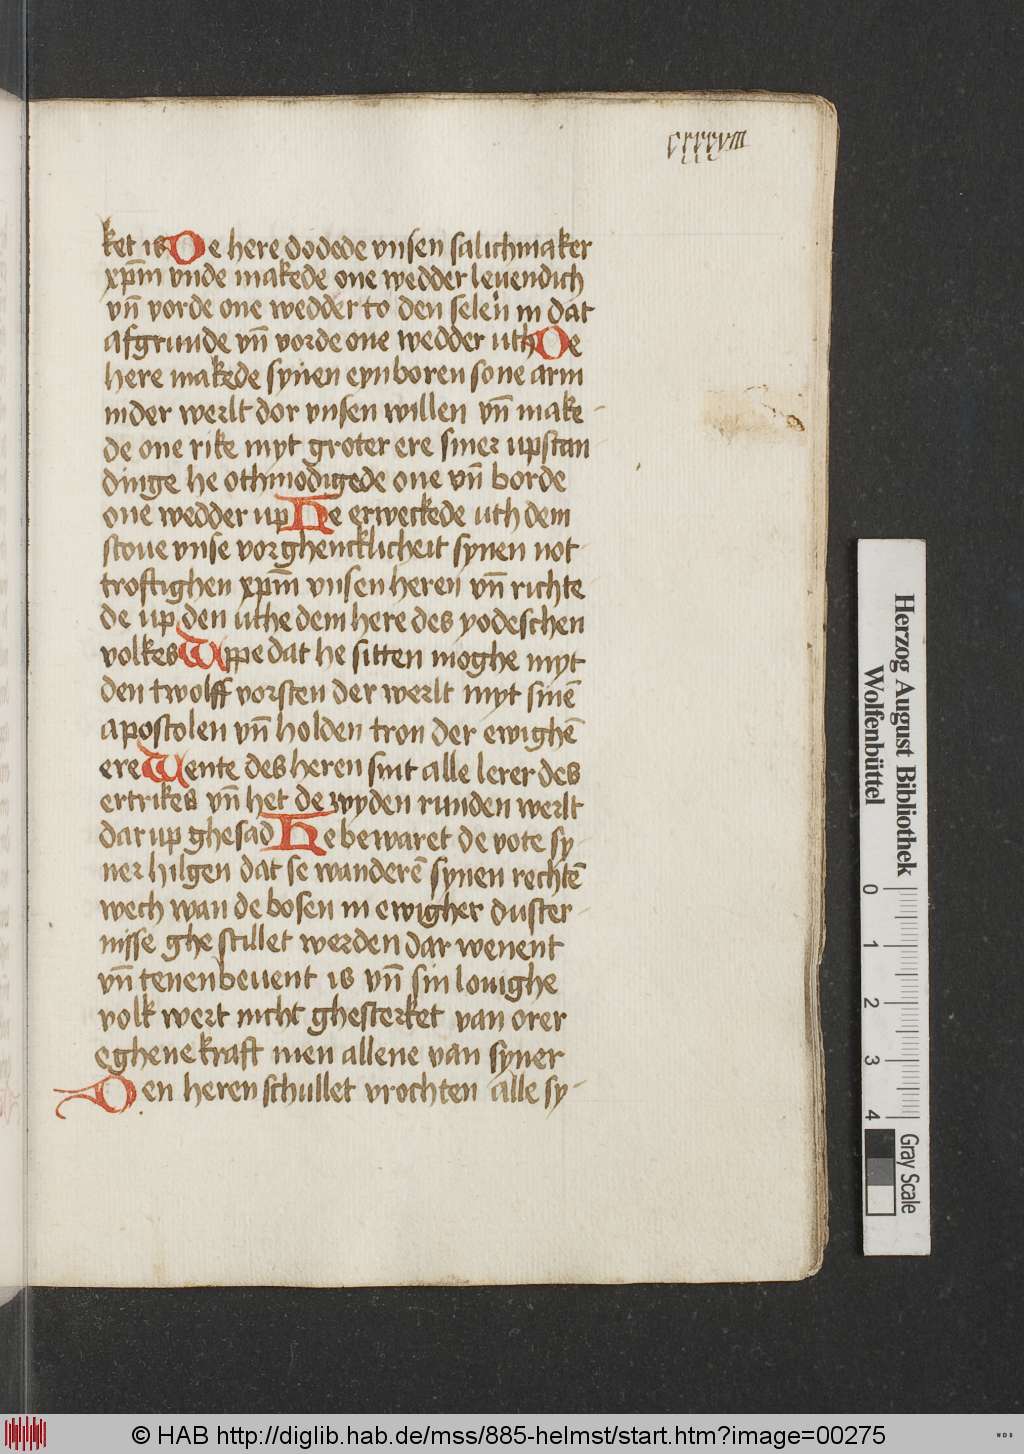 cxxxxviii
ket is De here dodede vnsen salichmaker
xp̄m vnde makede one wedder leuendich
vn̄ vorde one wedder to den selen in dat
afgrunde vn̄ vorde one wedder uth De
here makede synen eynboren sone arm
in der werlt dor vnsen willen vn̄ make-
de one rike myt groter ere siner upstan
dinge he othmodigede one vn̄ borde
one wedder up He erweckede uth dem
stoue vnse vorghencklicheit synen not-
troftighen xp̄m vnsen heren vn̄ richte-
de up den uthe dem here des yodeschen
volkes Uppe dat he sitten moghe myt
den twolff vorsten der werlt myt sinē
apostolen vn̄ holden tron der ewighē
ere Wente des heren sint alle lerer des
ertrikes vn̄ het de wyden runden werlt
dar up ghesad He bewaret de vote sy-
ner hilgen dat se wanderē synen rechtē
wech wan de bosen in ewigher duster-
nisse ghestillet werden dar wenent
vn̄ tenenbeuent is vn̄ sin louighe
volk wert nicht ghesterket van orer
eghene kraft men allene van syner
Den heren schullet vrochten alle sy-
Herzog August Bibliothek
Wolfenbüttel
0 1 2 3 4
Gray Scale
© HAB http://diglib.hab.de/mss/885-helmst/start.htm?image=00275